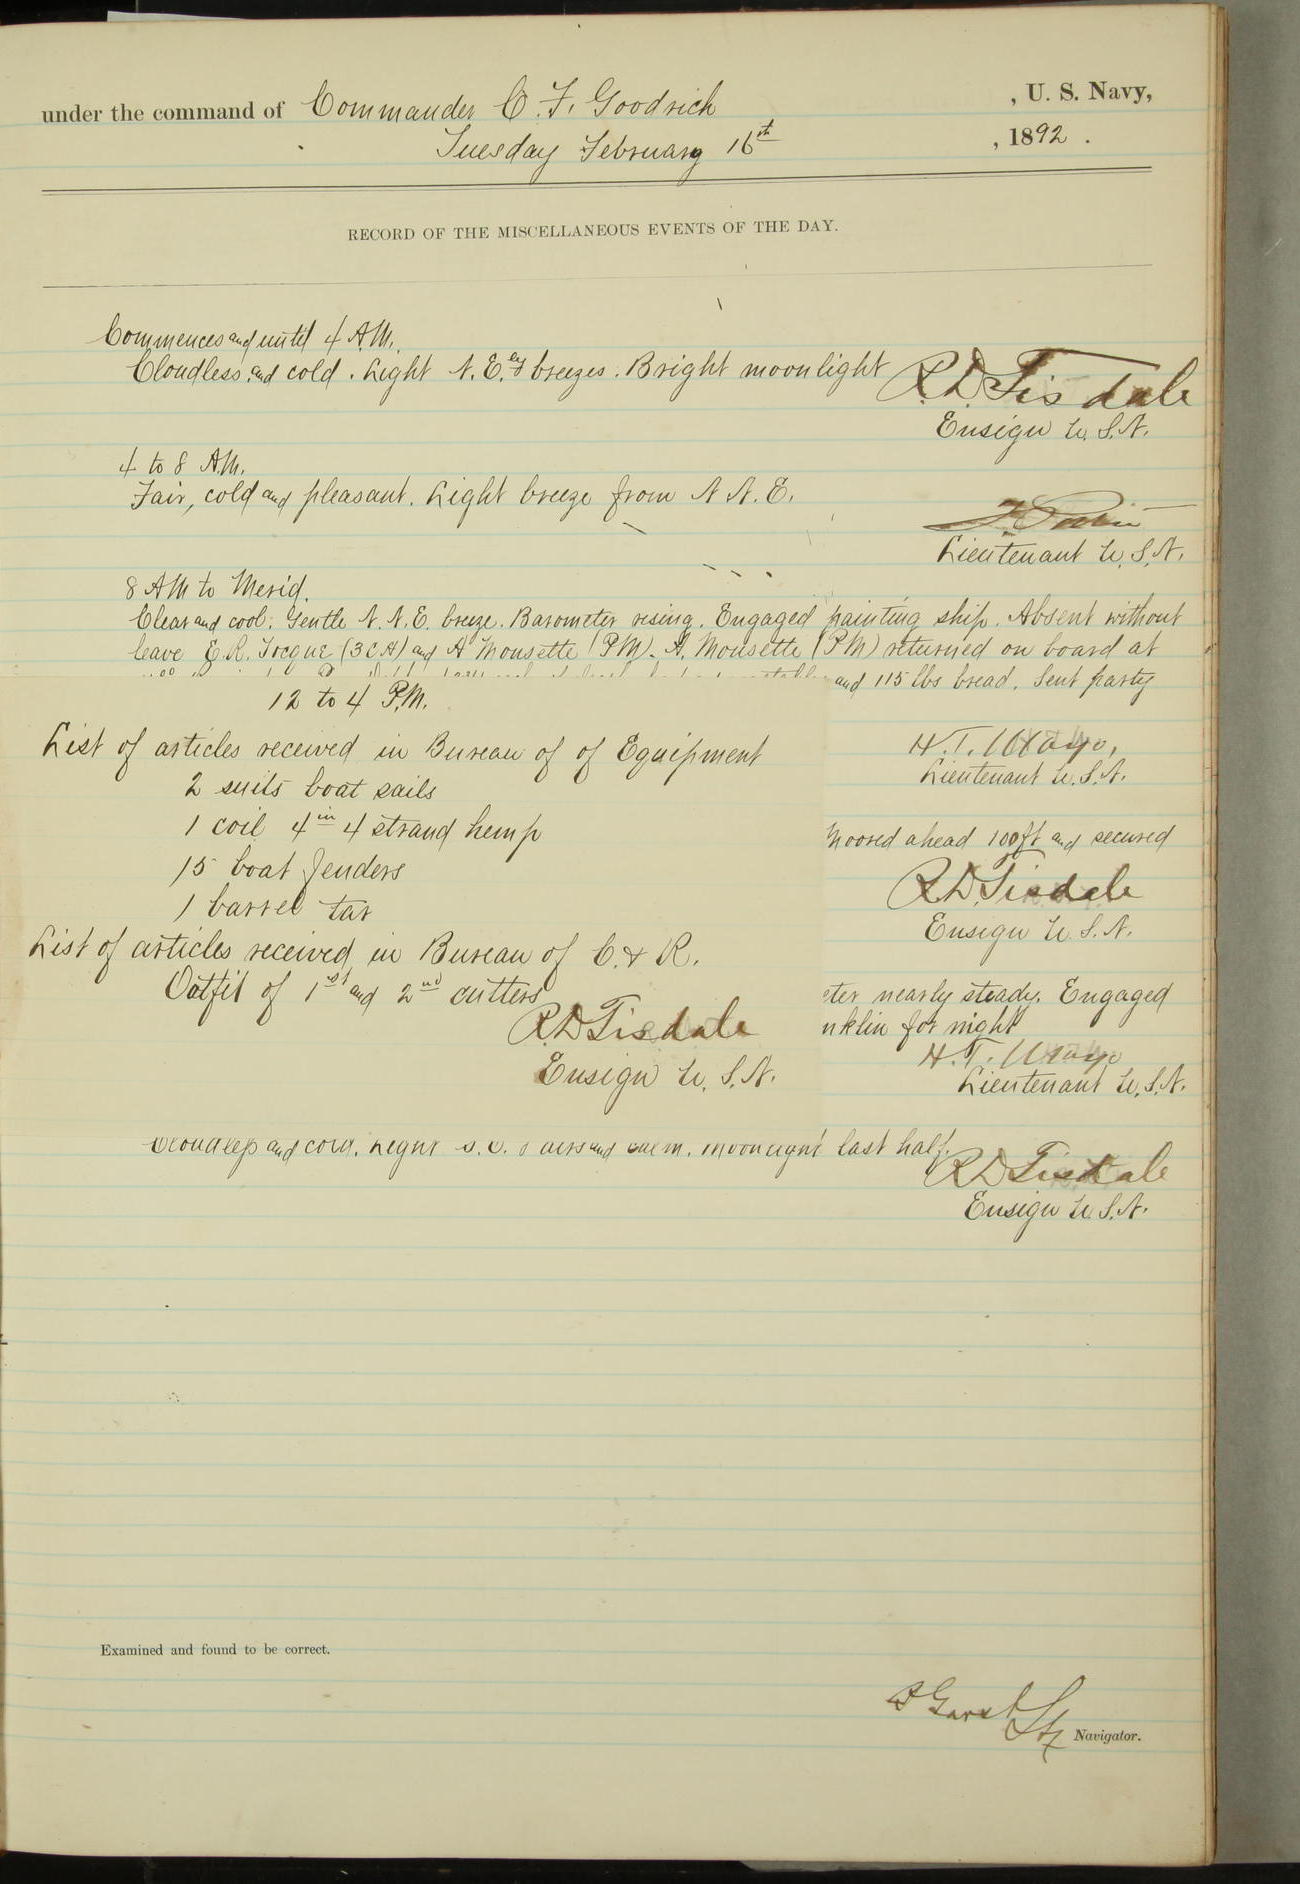 under the command of Commander C. F. Goodrich , U. S. Navy,
Tuesday February 16th , 1892 .
RECORD OF THE MISCELLANEOUS EVENTS OF THE DAY.
Commences and until 4 A.M.
Cloudless and cold. Light N. E.ly breezes. Bright moonlight
R.D. Tisdale
Ensign U. S. N.
4 to 8 A.M.
Fair, cold and pleasant. Light breeze from N N. E.
Lieutenant U. S. N.
8 AM to Merid.
Clear and cool. Gentle N. N. E. breeze. Barometer rising. Engaged painting ship. Absent without
leave E. R. (3CA) and A Mousette (PM). A. Mousette (PM) returned on board at
and 115 lbs bread. Sent party
12 to 4 P.M.
List of articles received in Bureau of of Equipment
H. T. Mayo,
Lieutenant U. S. N.
2 suits boat sails
1 coil 4in 4 strand hemp
Moored ahead 100ft and secured
15 boat fenders
R.D. Tisdale
1 barrel tar
Ensign U. S. N.
List of articles received in Bureau of C. & R.
Outfit of 1st and 2nd cutters
nearly steady. Engaged
R.D. Tisdale
for night
Ensign U. S. N.
H. T. Mayo
Lieutenant U. S. N.
Cloudless and cold. Light S. E. airs and calm. Moonlight last half.
R D Tisdale
Ensign U. S. N.
Examined and found to be correct.
Garst
Navigator.